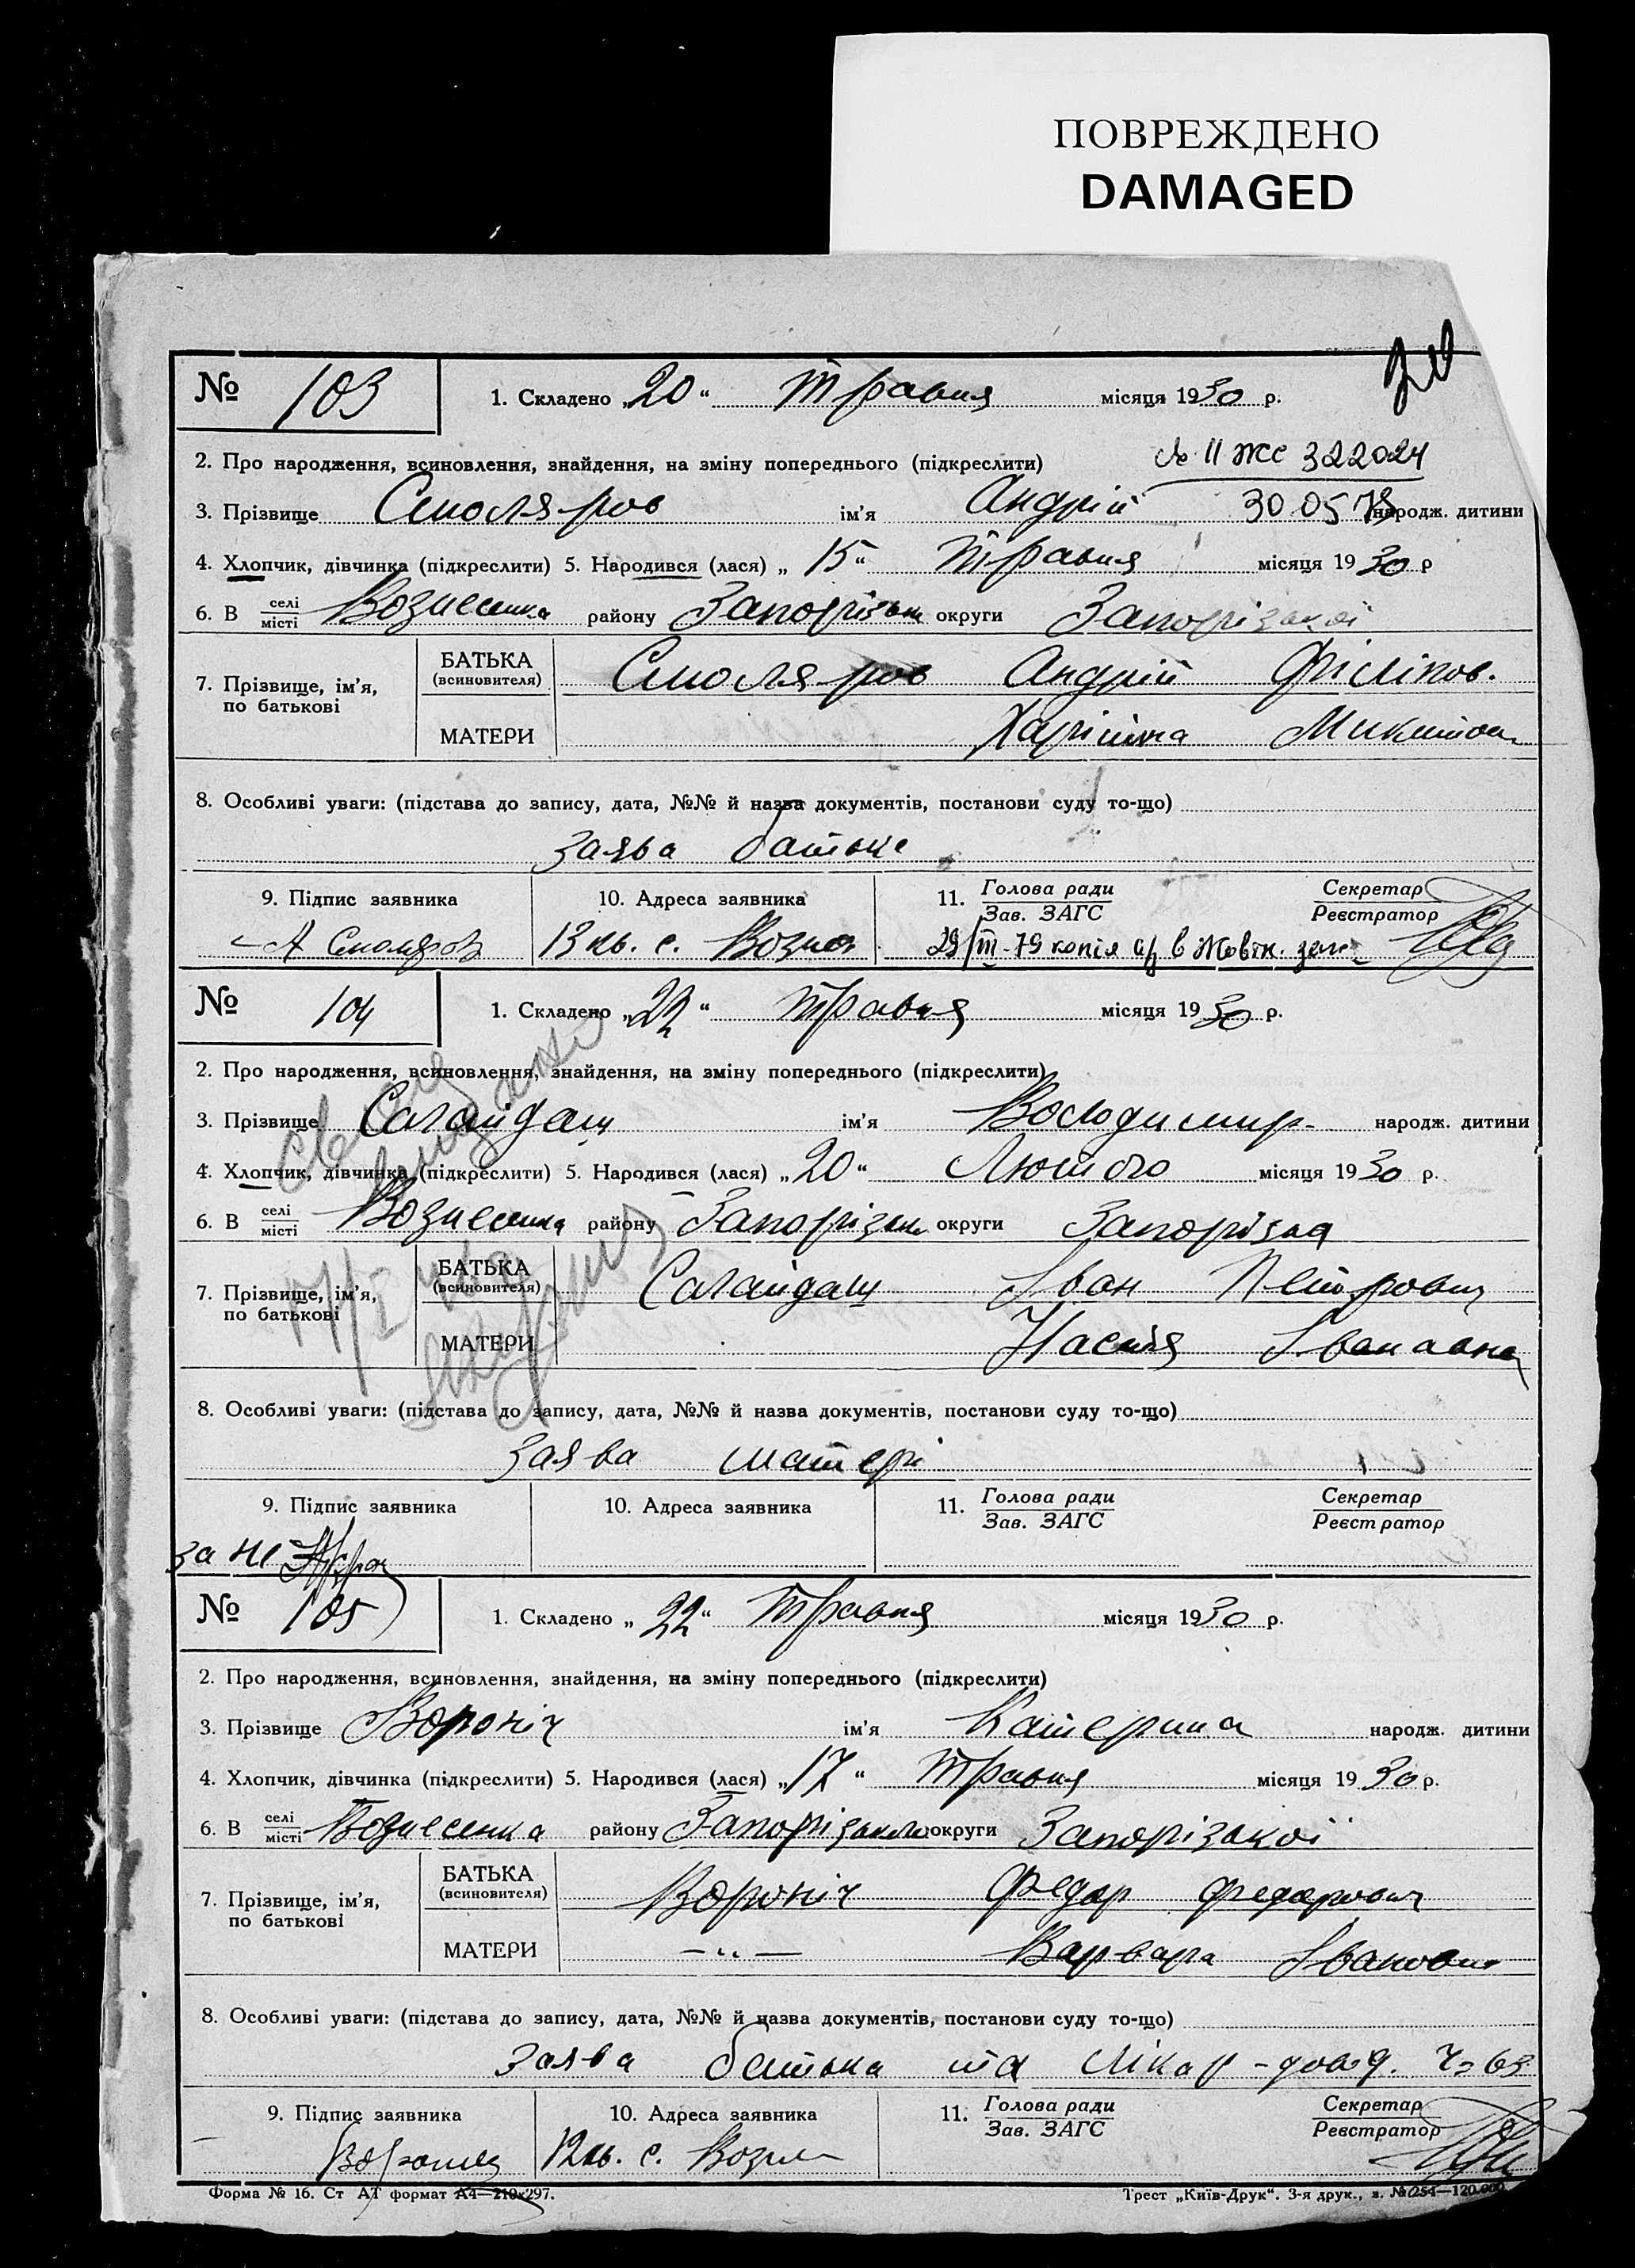 ПОВРЕЖДЕНО
DAMAGED
№ 103 1. Складено „20“ Травня місяця 1930 р.
2. Про народження, всиновлення, знайдення, на зміну попереднього (підкреслити)
II ЖС 322024
3. Прізвище Смоляров ім'я Андрій 30 05 79 народж. дитини
4. Хлопчик, дівчинка (підкреслити) 5. Народився (лася) „15“ Травня місяця 1930 р
6. В селі місті Вознесенка району Запорізьк округи Запорізької
7. Прізвище, ім'я, по батькові
БАТЬКА (всиновителя) Смоляров Андрій Філіпов.
МАТЕРИ Микитов
8. Особливі уваги: (підстава до запису, дата, №№ й назва документів, постанови суду то-що)
Заява батька
9. Підпис заявника 10. Адреса заявника 11. Голова ради Зав. ЗАГС Секретар Реєстратор
А Смоляров 13 кв. с. Возне 29/III-79 копія в Жовтн. загс
№ 104 1. Складено „22“ Травня місяця 1930 р.
2. Про народження, всиновлення, знайдення, на зміну попереднього (підкреслити)
3. Прізвище Сагайдаш ім'я Володимир народж. дитини
4. Хлопчик, дівчинка (підкреслити) 5. Народився (лася) „20“ Лютого місяця 1930 р.
6. В селі місті Вознесенка району Запорізьк округи Запорізька
7. Прізвище, ім'я, по батькові
БАТЬКА (всиновителя) Сагайдаш Іван Петрович
МАТЕРИ Настя Івановна
8. Особливі уваги: (підстава до запису, дата, №№ й назва документів, постанови суду то-що)
Заява матері
9. Підпис заявника 10. Адреса заявника 11. Голова ради Зав. ЗАГС Секретар Реєстратор
за не
№ 105 1. Складено „22“ Травня місяця 1930 р.
2. Про народження, всиновлення, знайдення, на зміну попереднього (підкреслити)
3. Прізвище Вороніч ім'я Катерина народж. дитини
4. Хлопчик, дівчинка (підкреслити) 5. Народився (лася) „17“ Травня місяця 1930 р.
6. В селі місті Вознесенка району Запорізького округи Запорізької
7. Прізвище, ім'я, по батькові
БАТЬКА (всиновителя) Вороніч Федор Федорович
МАТЕРИ —„— Варвара Івановна
8. Особливі уваги: (підстава до запису, дата, №№ й назва документів, постанови суду то-що)
Заява батька та лікар-довід. Ч= 63
9. Підпис заявника 10. Адреса заявника 11. Голова ради Зав. ЗАГС Секретар Реєстратор
12 кв. с. Возне
Форма № 16. Ст АТ формат А4—210х297. Трест „Київ-Друк“. 3-я друк., з. № 254—120.000.